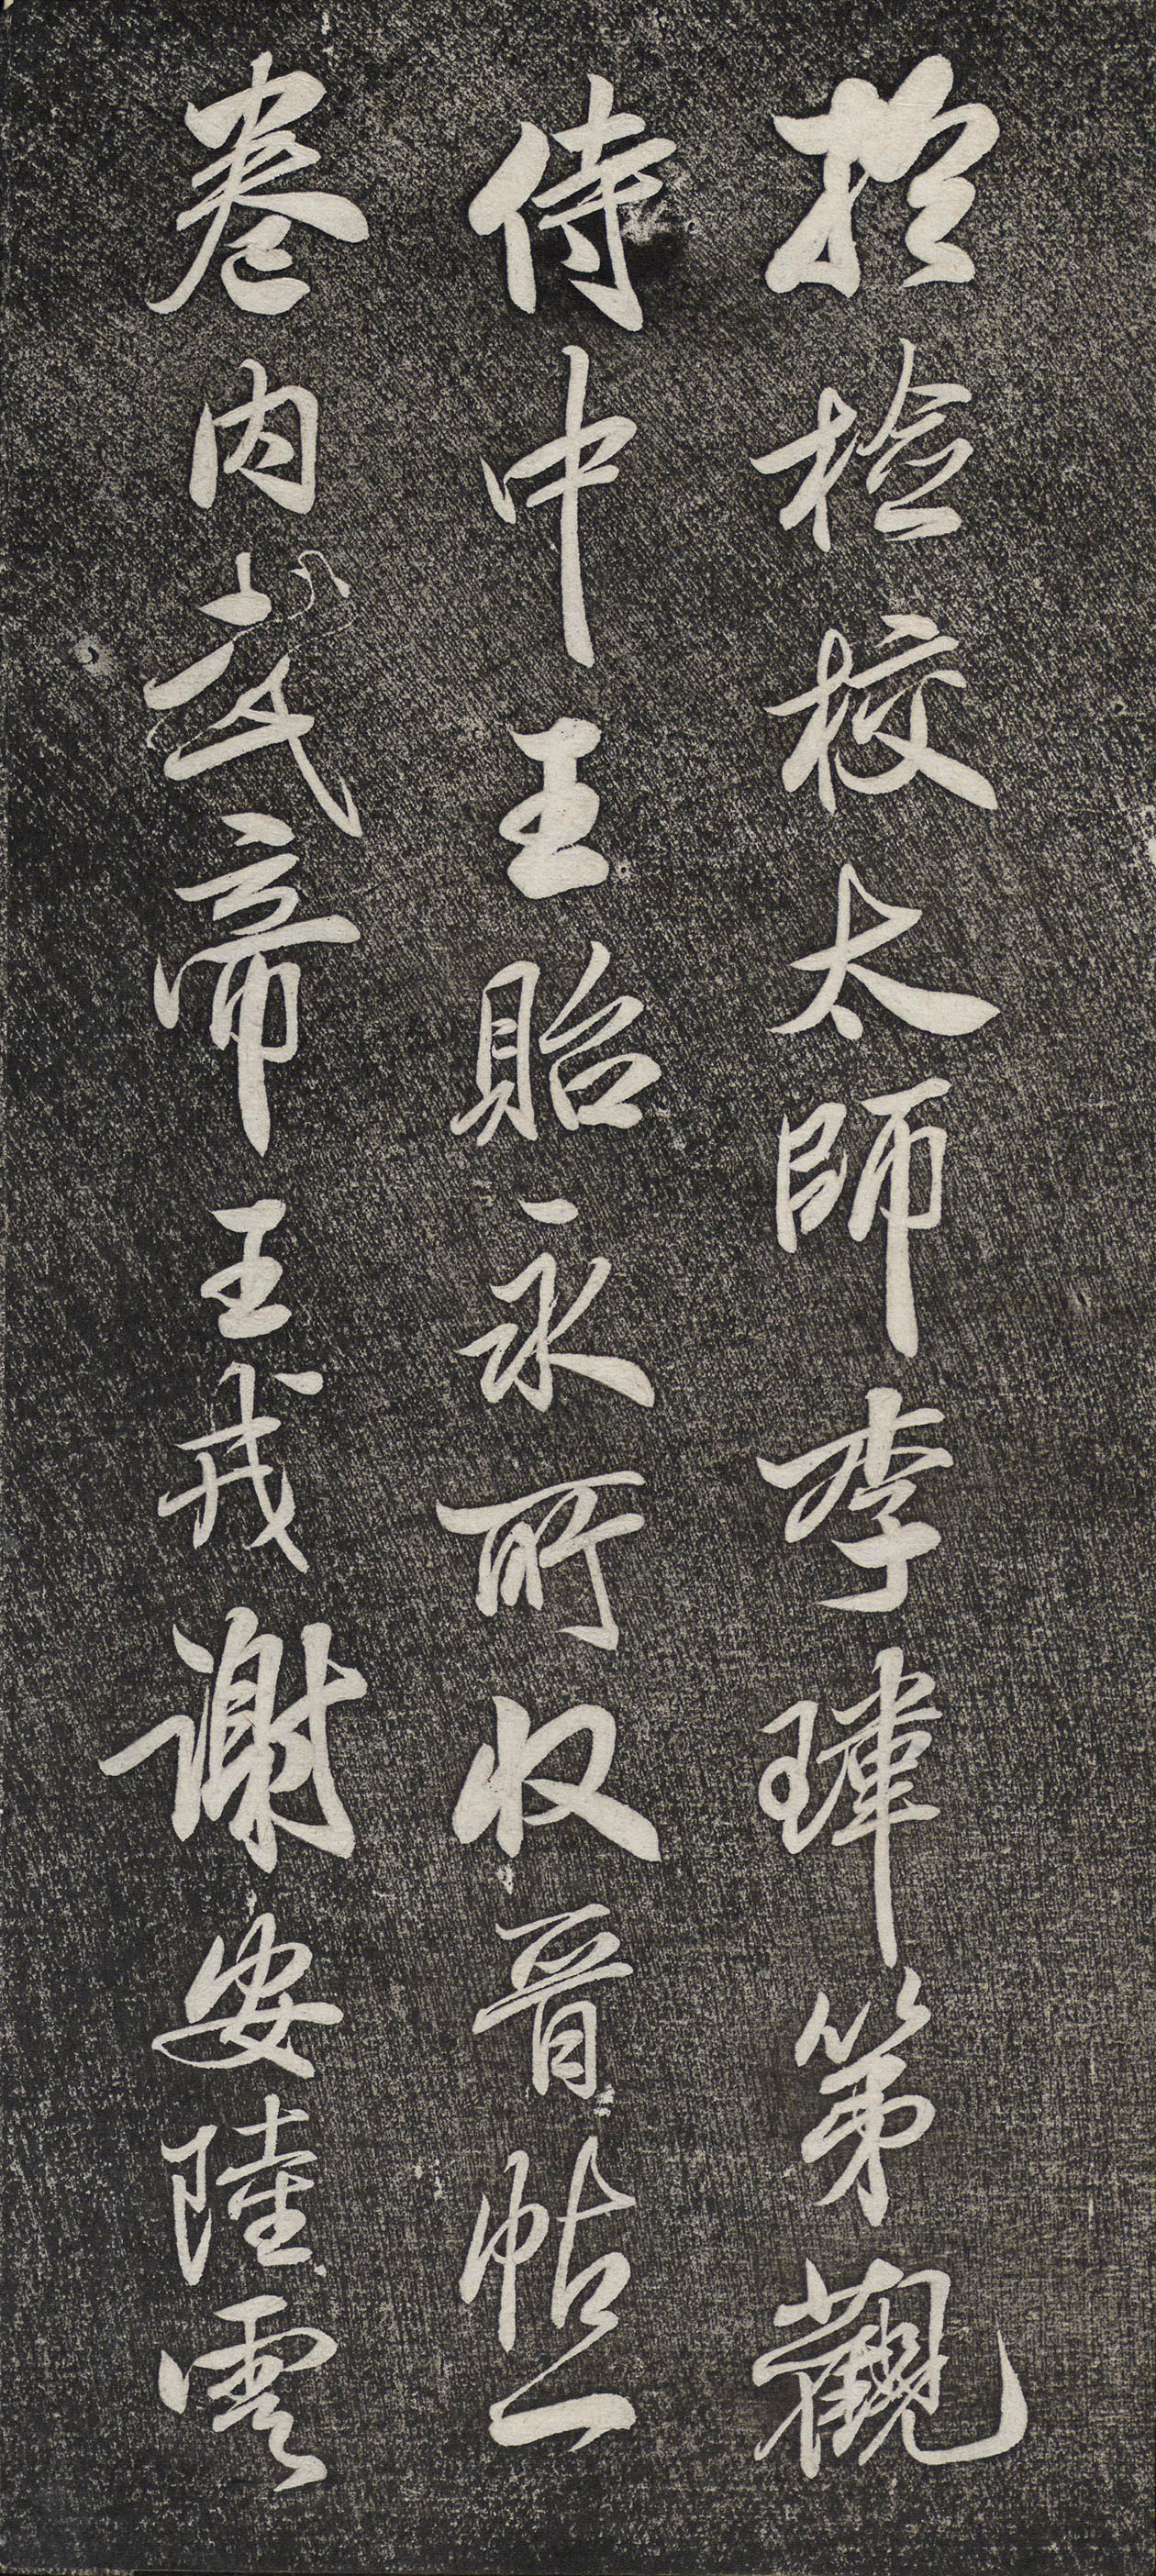 於檢校太師李瑋第觀
侍中王貽永所收晉帖一
卷内武帝王戎謝安陸雲